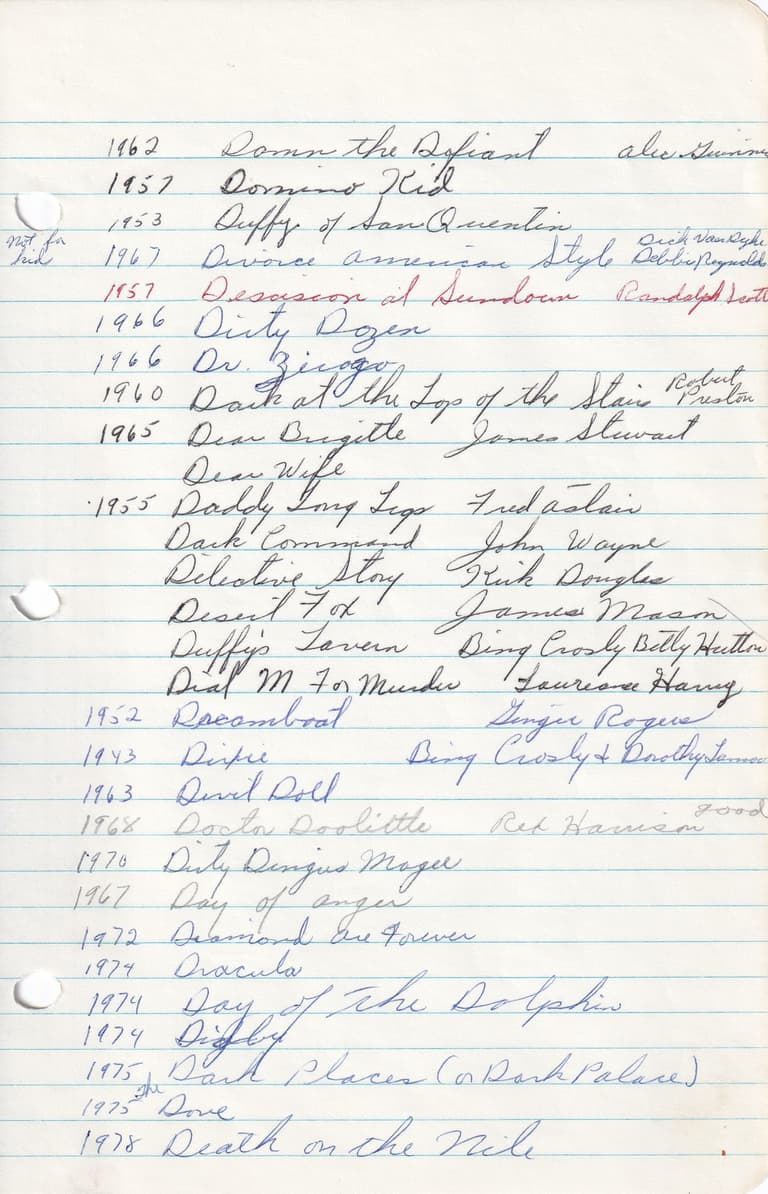 1962 Damn the Defiant Alec Guinnes
1957 Domino Kid
1953 Duffy of San Quentin
Not for kid 1967 Divorce American Style Dick Van Dyke Debbie Reynolds
1957 Descision at Sundown Randolph Scott
1966 Dirty Dozen
1966 Dr. Zivago
1960 Dark at the Top of the Stairs Robert Preston
1965 Dear Brigitte James Stewart
Dear Wife
1955 Daddy Long Legs Fred Astair
Dark Command John Wayne
Detective Story Kirk Douglas
Desert Fox James Mason
Duffy's Tavern Bing Crosby Betty Hutton
Dial M For Murder Laurence Harvey
1952 Dreamboat Ginger Rogers
1943 Dixie Bing Crosby & Dorothy Lamou
1963 Devil Doll
1968 Doctor Doolittle Rex Harrison good
1970 Dirty Dingus Magee
1967 Day of anger
1972 Diamond are Forever
1974 Dracula
1974 Day of the Dolphin
1974 Digby
1975 Dark Places (or Dark Palace)
1975 The Dove
1978 Death on the Nile